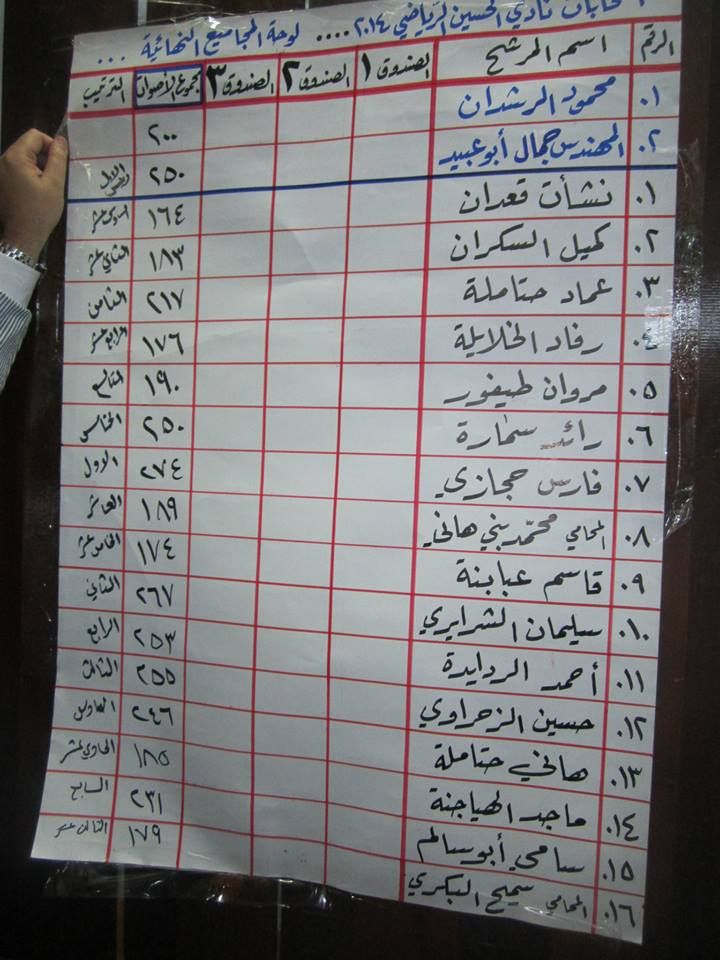 نادي الحسين الرياضي ٢٠١٤ .... لوحة المجاميع النهائية ...
الرقم اسم المرشح الصندوق ١ الصندوق ٢ الصندوق ٣ مجموع الأصوات الترتيب
٠١ محمود الرشدان ٢٠٠
٠٢ المهندس جمال أبوعبيد ٢٥٠ الاول
٠١ نشأت قعدان ١٦٤ السادس عشر
٠٢ كميل السكران ١٨٣ الثاني عشر
٠٣ عماد حتاملة ٢١٧ الثامن
٠٤ رفاد الخلايلة ١٧٦ الرابع عشر
٠٥ مروان طيفور ١٩٠ التاسع
٠٦ رائد سمارة ٢٥٠ الخامس
٠٧ فارس حجازي ٢٧٤ الاول
٠٨ المحامي محمد بني هاني ١٨٩ العاشر
٠٩ قاسم عبابنة ١٧٤ الخامس عشر
٠١٠ سليمان الشرايري ٢٦٧ الثاني
٠١١ أحمد الردايدة ٢٥٣ الرابع
٠١٢ حسين الزحراوي ٢٥٥ الثالث
٠١٣ هاني حتاملة ٢٤٦ السادس
٠١٤ ماجد الهياجنة ١٨٥ الحادي عشر
٠١٥ سامي أبوسالم ٢٣١ السابع
٠١٦ المحامي سميح البكري ١٧٩ الثالث عشر